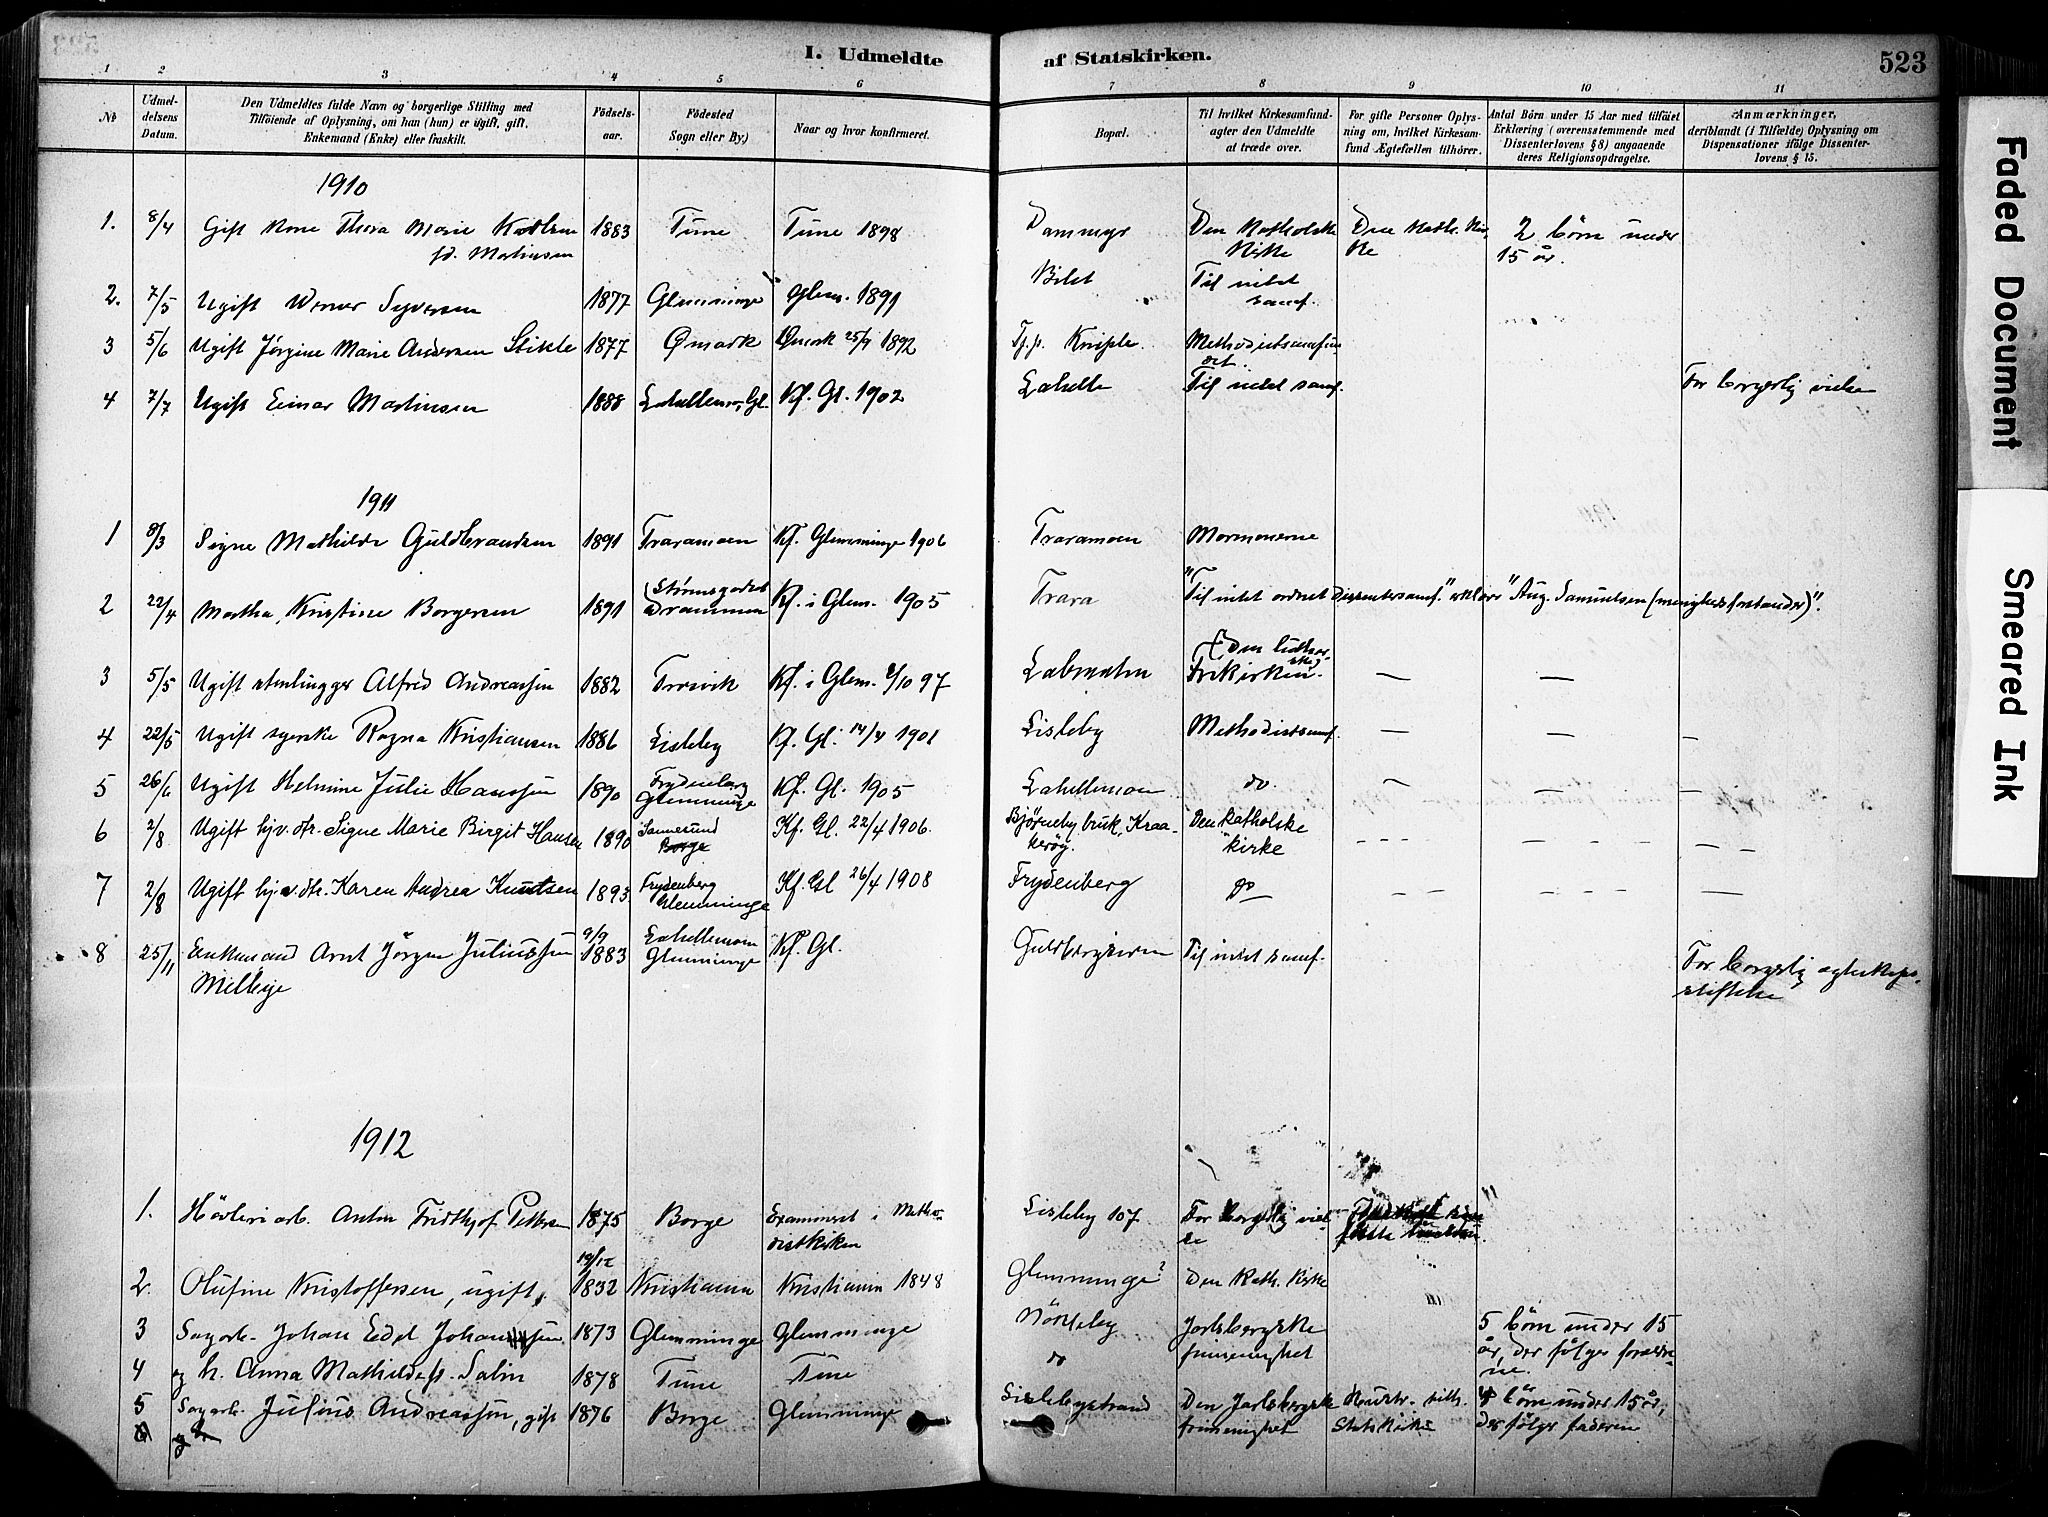 I. Udmeldte af Statskirken. 523
1 2 3 4 5 6 7 8 9 10 11
No Udmeldelsens Datum. Den Udmeldtes fulde Navn og borgerlige Stilling med Tilföiende af Oplysning, om han (hun) er ugift, gift, Enkemand (Enke) eller fraskilt. Födselsaar. Födested Sogn eller By.) Naar og hvor konfirmeret. Bopæl. Til hvilket Kirkesamfund agter den Udmeldte at træde over. For gifte Personer Oplysning om, hvilket Kirkesamfund Ægtefællen tilhörer. Antal Börn under 15 Aar med tilföiet Erklæring (overensstemmende med Dissenterlovens § 8) angaaende deres Religionsopdragelse. Anmærkninger, deriblandt (i Tilfælde) Oplysning om Dispensationer ifölge Dissenterlovens § 15.
1910
1. 8/4 Gift Kone Thora Marie Karlsen fd. Martinsen 1883 Tune Tune 1898 Dammyr Den Katholske Kirke Den Kath. Kirke 2 börn under 15 år.
2. 7/5 Ugift Werner Syversen 1877 Glemminge Glem. 1891 Bilet Til intet samf.
3 5/6 Ugift Jörgine Marie Andersen Stikle 1877 Ømark Ømark 25/9 1892 Tj.p. Kniple Methodistsamfundet.
4 7/7 Ugift Einar Martinsen 1888 Labellemo, Gl. Kf. Gl. 1902 Labelle Til intet samf. For borgerlig vielse
1911
1 8/3 Signe Mathilde Guldbrandsen 1891 Traramoen Kf. Glemminge 1906 Traramoen Mormonerne
2 22/4 Martha Kristine Borgersen 1891 (Strömsgodset Drammen Kf. i Glem. 1905 Trara "Til intet ordnet dissentersamf." erklærer "Aug. Samuelsen (menighedsforstander)".
3 5/5 Ugift stenhugger Alfred Andreassen 1882 Trosvik Kf. i Glem. /10 97 (Den lutherske) Frikirken. — —
4 22/5 Ugift syerske Ragna Kristiansen 1886 Lisleby Kf. Gl. 14/4 1901 Lisleby Methodistsamf. — — —
5 26/6 Ugift Helmine Julie Hanssen 1890 Frydenberg Glemminge Kf. Gl. 1905 Labellemoen do. — — —
6 2/8 Ugift hjv. dtr. Signe Marie Birgit Hansen 1890 Sannesund Borge Kf. Gl. 22/4 1906. Bjørneby bruk, Kraakerøy. Den katholske kirke
7 2/8 Ugift hj.v. dtr. Karen Andrea Knutsen 1893 Frydenberg Glemminge Kf. Gl 26/4 1908 Frydenberg do
8 25/11 Enkemand Arnt Jörgen Juliussen Melleije 9/9 1883 Labellemoen Glemminge Kf. Gl. Til intet samf. For borgerlig ægteskapsstiftelse
1912
1. Hövleriarb. Anton Fridthjof Pettersen 1875 Borge Examineret i Methodistkirken Lisleby 107 For borgerlig vielse
2. Olufine Kristoffersen, ugift, 19/12 1832 Kristiania Kristiania 1848 Glemminge? Den Kath. Kirke
3 Sagarb. Johan Edel Johanssen 1873 Glemminge Glemminge Nökleby Jarlsbergske frimenighet 5 börn under 15 år, der fölger forældrene.
4 og h. Anna Mathilde f. Salin 1878 Tune Tune do
5 Sagarb. Julius Andreassen, gift 1876 Borge Glemminge Lislebystrand Den Jarlsbergske frimenighet Hustr. tilh. Statskirke 4 börn under 15 år, der fölger faderen
Faded Document
Smeared Ink